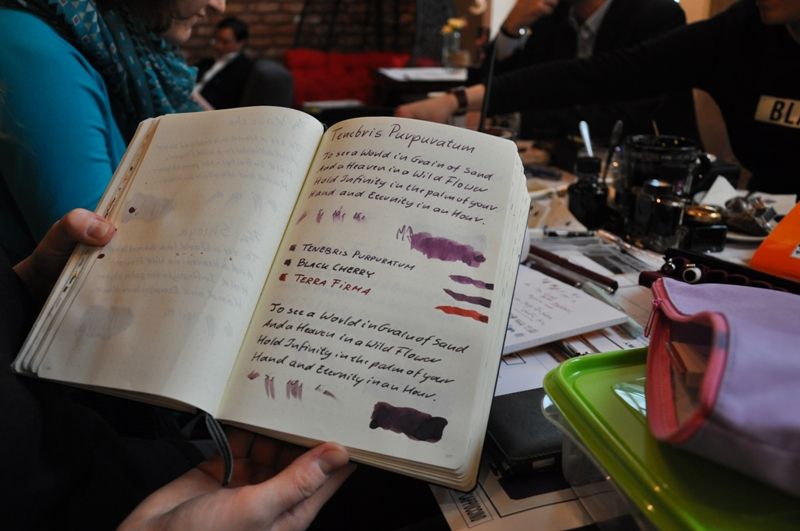 Tenebris Purpuratum
To see a World in Grain of Sand
And a Heaven in a Wild Flower
Hold Infinity in the palm of your
Hand and Eternity in an Hour.
TENEBRIS PURPURATUM
BLACK CHERRY
TERRA FIRMA
To see a World in Grain of Sand
And a Heaven in a Wild Flower
Hold Infinity in the palm of your
Hand and Eternity in an Hour.
BL